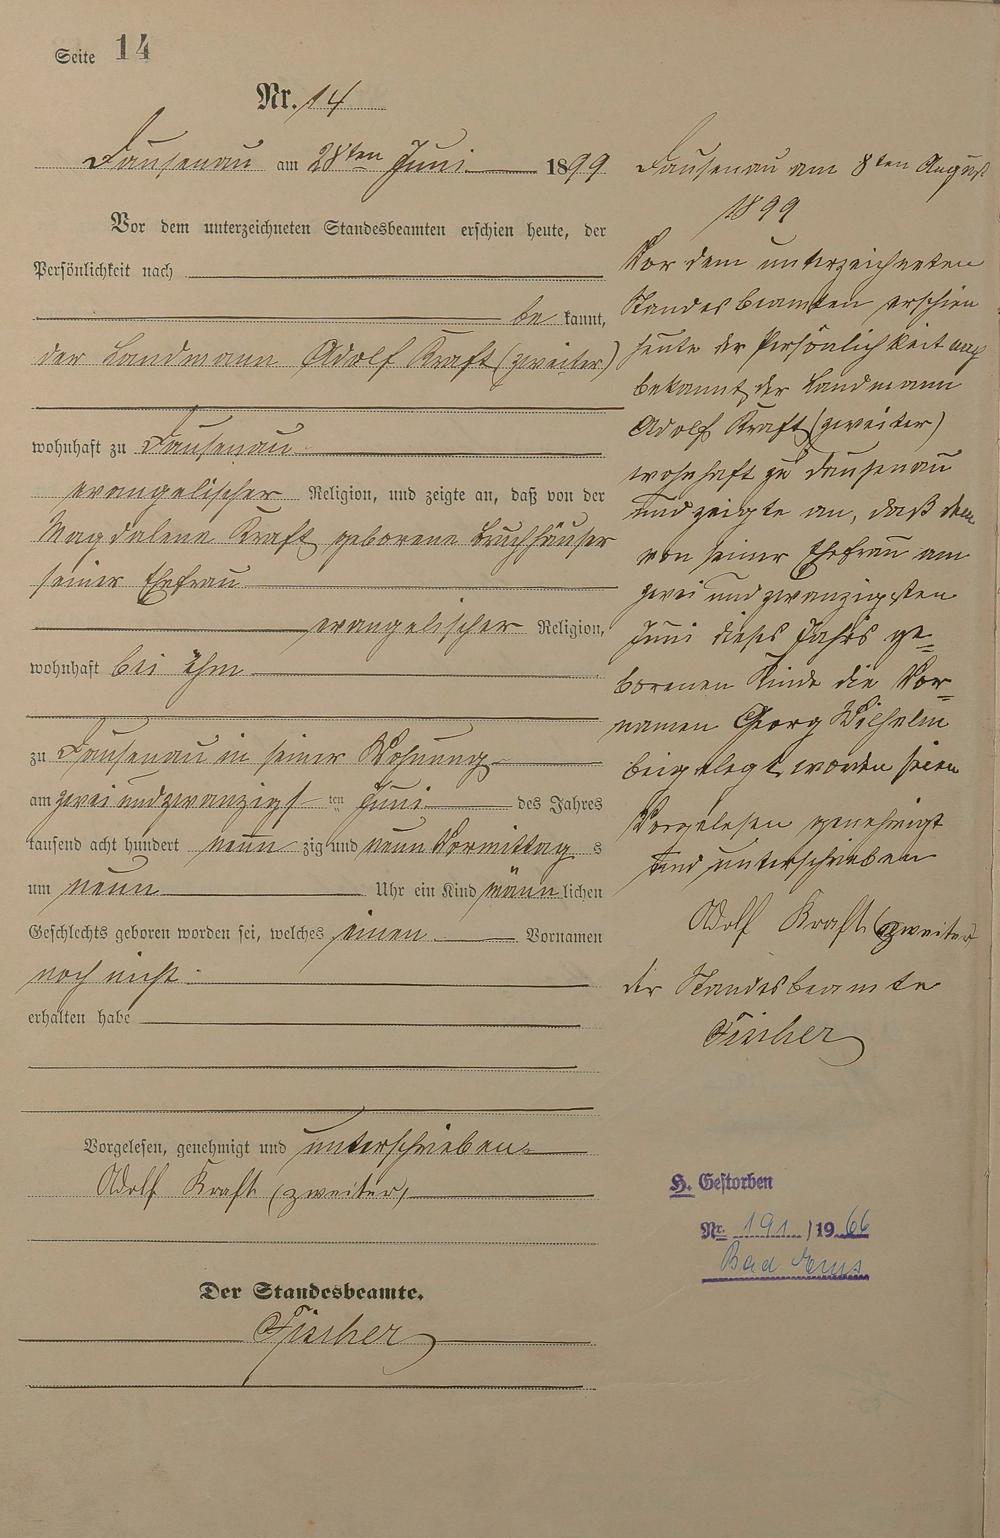 Seite 14
Nr. 14
Dausenau am 28ten Juni 1899
Vor dem unterzeichneten Standesbeamten erschien heute, der
Persönlichkeit nach
be kannt,
der Landmann Adolf Kraft (zweiter)
wohnhaft zu Dausenau
evangelischer Religion, und zeigte an, daß von der
Magdalena Kraft geborene Bruchhäuser
seiner Ehefrau
evangelischer Religion,
wohnhaft bei ihm
zu Dausenau in seiner Wohnung
am zwei und zwanzigs ten Juni des Jahres
tausend acht hundert neun zig und neun Vormittag s
um neun Uhr ein Kind männ lichen
Geschlechts geboren worden sei, welches einen Vornamen
noch nicht
erhalten habe
Vorgelesen, genehmigt und unterschrieben
Adolf Kraft (zweiter)
Der Standesbeamte.
Fischer
Dausenau am 8ten August
1899
Vor dem unterzeichneten
Standesbeamten erschien
heute der Persönlichkeit nach
bekannt, der Landmann
Adolf Kraft (zweiter)
wohnhaft zu Dausenau
und zeigte an, daß dem
von seiner Ehefrau am
zwei und zwanzigsten
Juni dieses Jahrs ge=
borenen Kinde die Vor=
namen Georg Wilhelm
beigelegt worden seien
Vorgelesen genehmigt
und unterschrieben
Adolf Kraft (zweiter
der Standesbeamte
Fischer
H. Gestorben
Nr. 191 /1966
Bad Ems